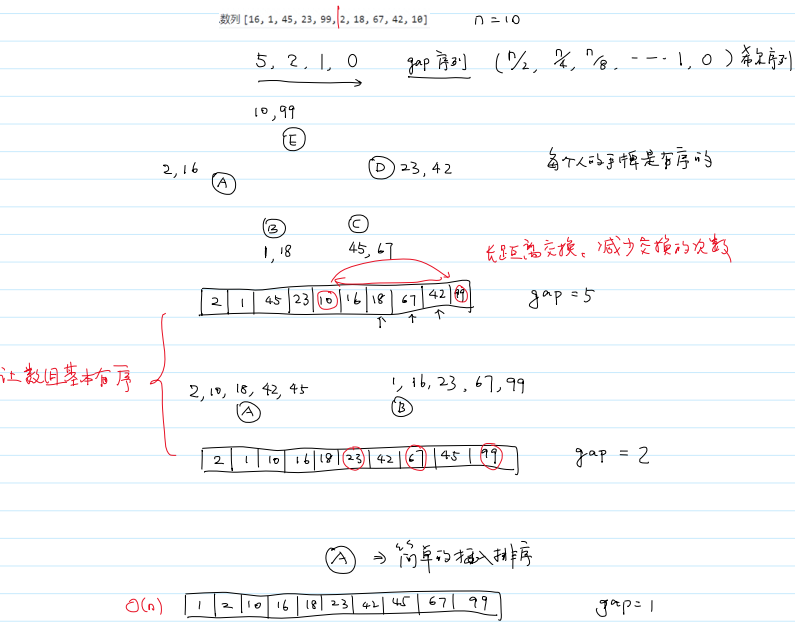 数列 [16, 1, 45, 23, 99, 2, 18, 67, 42, 10] n = 10
5, 2, 1, 0 gap 序列 (n/2, n/4, n/8, ---- 1, 0) 希尔序列
10, 99
E
2, 16 A D 23, 42 每个人的手牌是有序的
B C
1, 18 45, 67 长距离交换、减少交换的次数
2 1 45 23 10 16 18 67 42 99 gap = 5
让数组基本有序
2, 10, 18, 42, 45 1, 16, 23, 67, 99
A B
2 1 10 16 18 23 42 67 45 99 gap = 2
A ⇒ 简单的插入排序
O(n) 1 2 10 16 18 23 42 45 67 99 gap=1